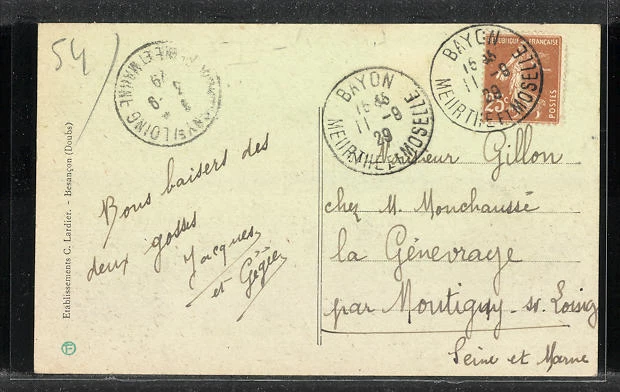 54
BAYON
15 45
11 -9
29
MEURTHE ET MOSELLE
BAYON
15 45
11 -9
29
MEURTHE ET MOSELLE
RÉPUBLIQUE FRANÇAISE
25c
POSTES
S/LOING
SEINE ET MARNE
Etablissements C. Lardier. - Besançon (Doubs)
Bons baisers des
deux gosses
Jacques
et Gégée
Monsieur Gillon
chez M. Monchaussé
la Génevraye
par Montigny-sr-Loing
Seine et Marne